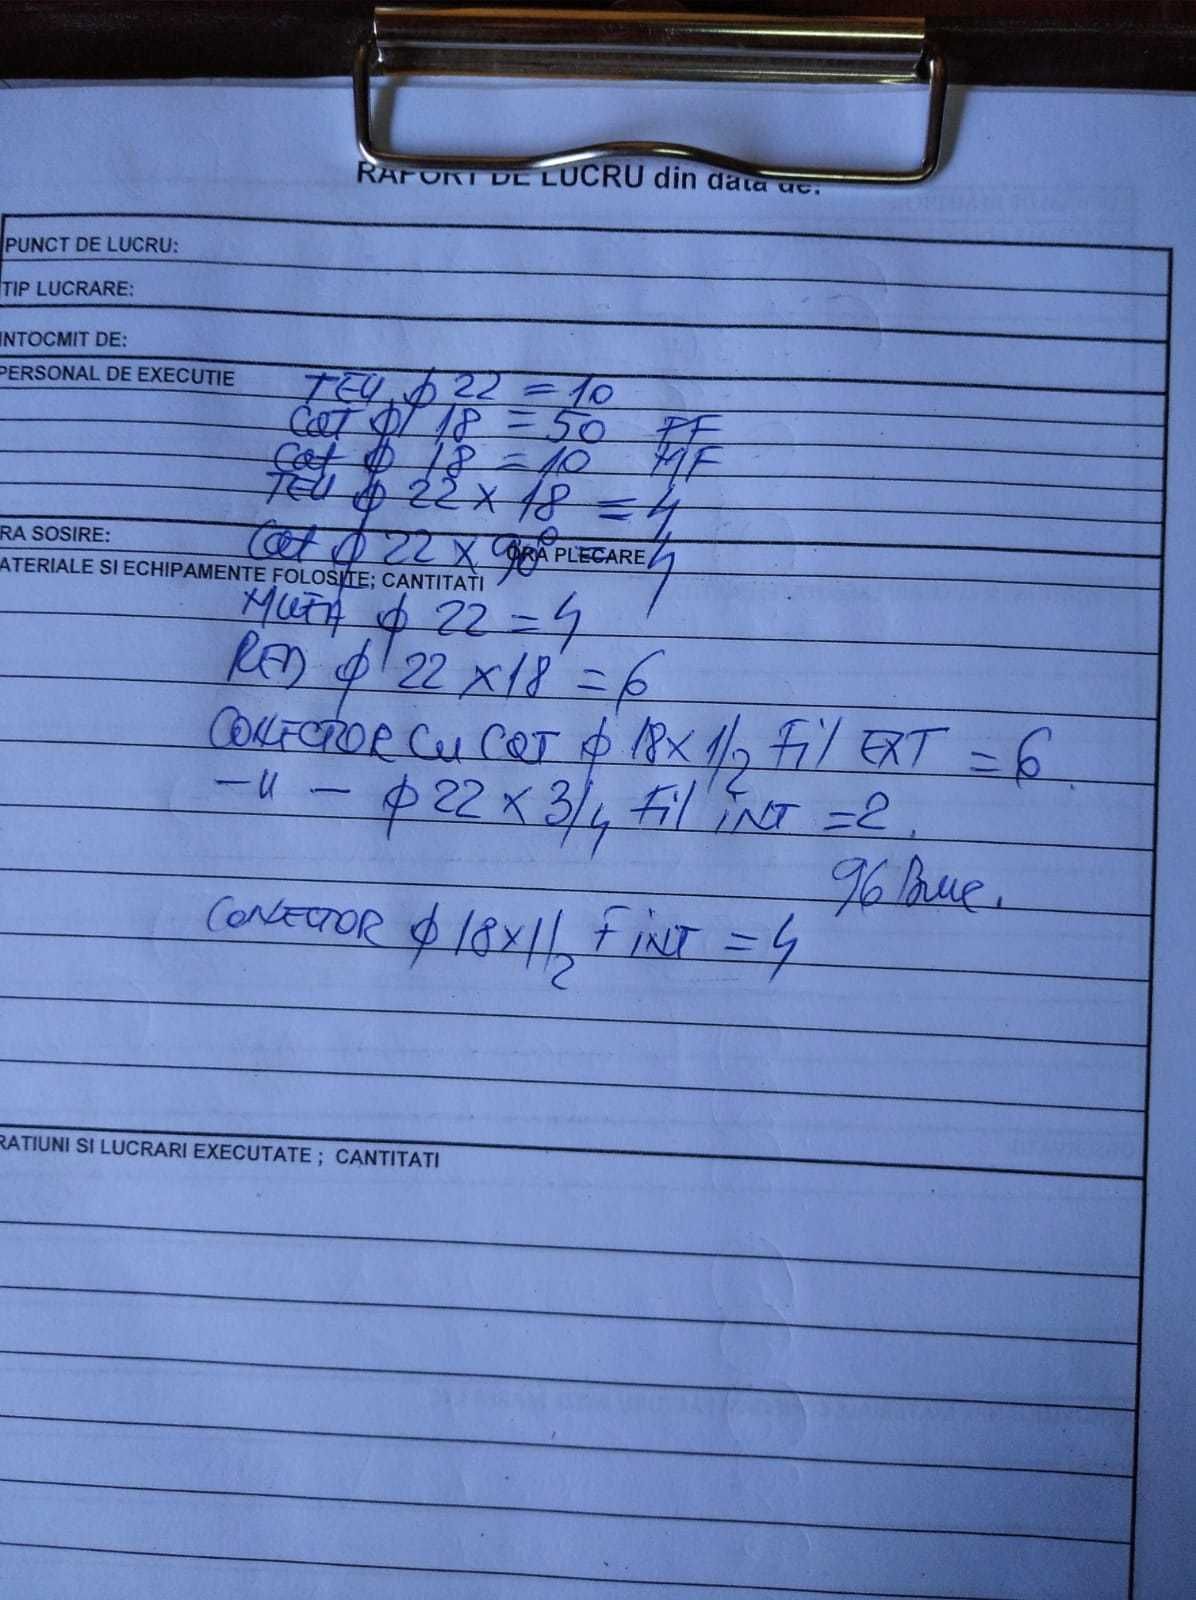 RAPORT DE LUCRU din data de:
PUNCT DE LUCRU:
TIP LUCRARE:
INTOCMIT DE:
PERSONAL DE EXECUTIE
TEU ϕ 22 = 10
COT ϕ 18 = 50 FF
Cot ϕ 18 = 10 MF
TEU ϕ 22 x 18 = 4
RA SOSIRE:
Cot ϕ 22 x 90° = 4
ORA PLECARE
ATERIALE SI ECHIPAMENTE FOLOSITE; CANTITATI
MUFA ϕ 22 = 4
RED ϕ 22 x 18 = 6
CONECTOR CU COT ϕ 18 x 1/2 Fil EXT = 6.
-"- ϕ 22 x 3/4 Fil INT = 2.
96 Buc.
CONECTOR ϕ 18 x 1/2 F INT = 4
RATIUNI SI LUCRARI EXECUTATE ; CANTITATI